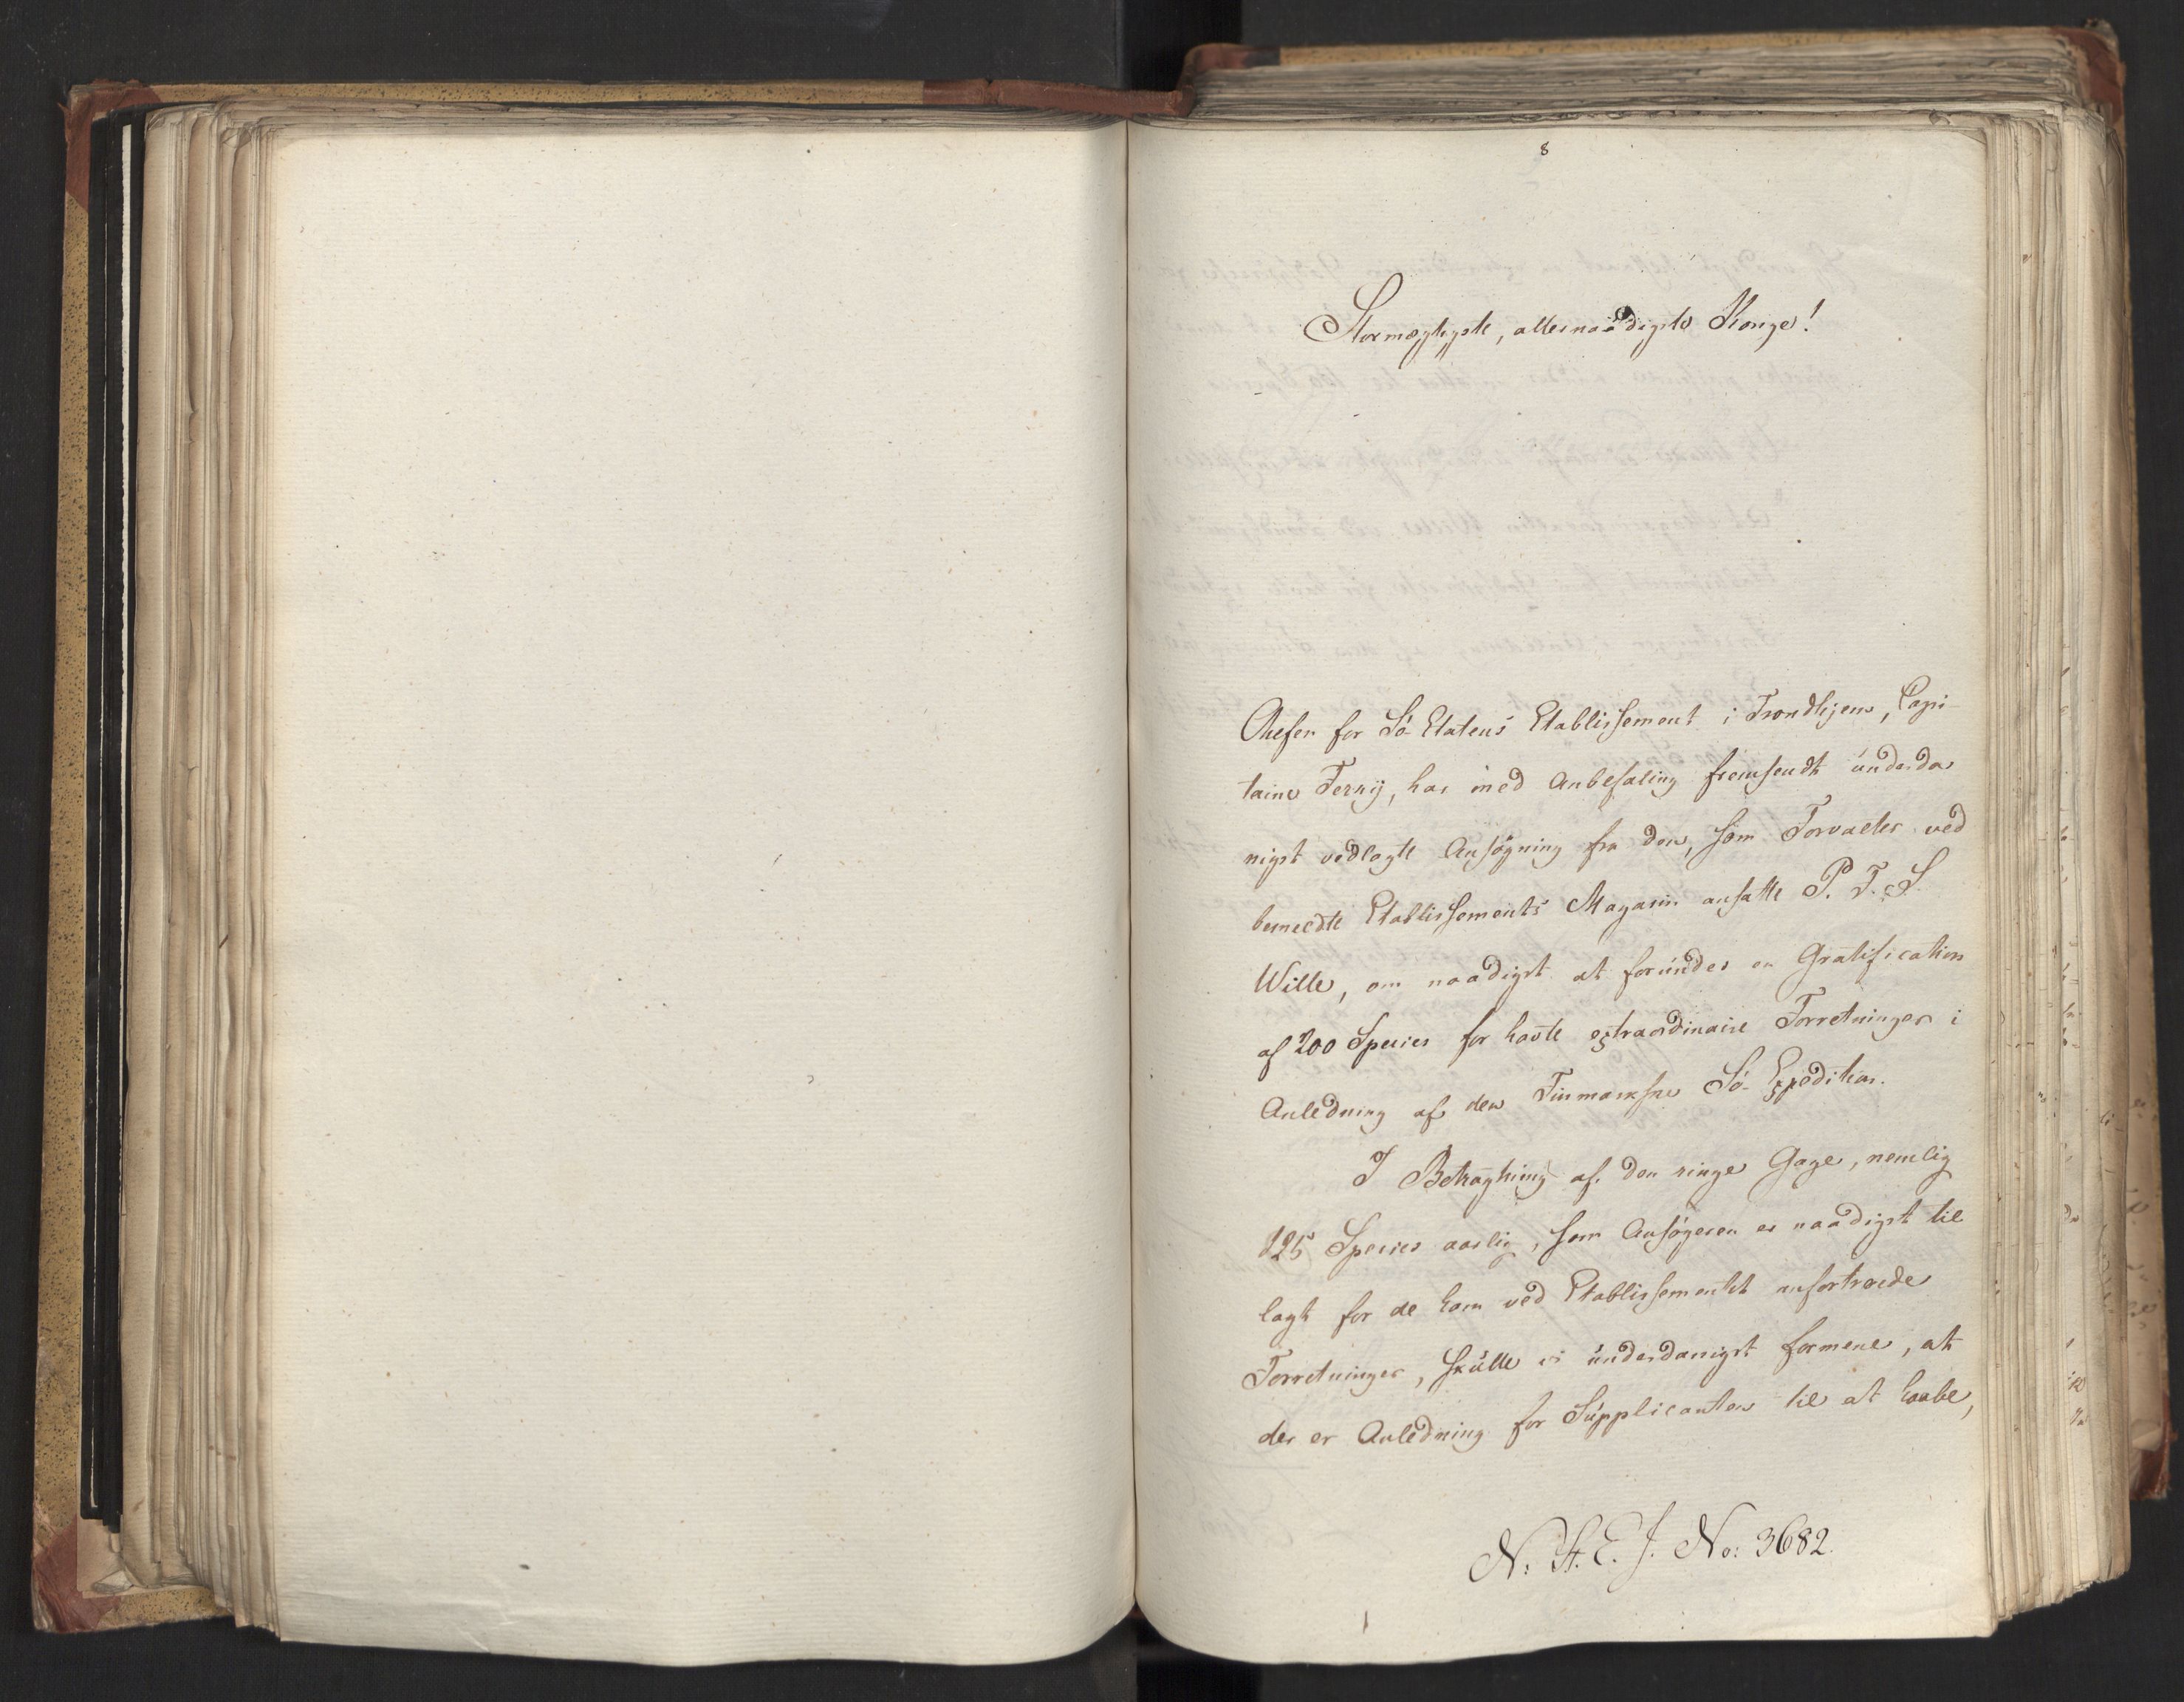 8
Stormægtigste, allernaadigste Konge!
Chefen for Sö-Etatens Etablissement i Trondhjem, Capi-
taine Ferry, har med Anbefaling fremsendt underda-
nigst vedlagte Ansögning fra den, som Forvalter ved
bemeldte Etablissements Magasin ansatte P. T. S.
Wille, om naadigst at forundes en Gratification
af 200 Species for havte extraordinaire Forretninger i
Anledning af den Finmarkske Sö-Expedition.
I Betragtning af den ringe Gage, nemlig
125 Species aarlig, som Ansögeren er naadigst til
lagt for de ham ved Etablissementet anfortroede
Forretninger, skulle vi underdanigst formene, at
der er Anledning for Supplicanten til at haabe,
N: A. E. J. No: 3682.